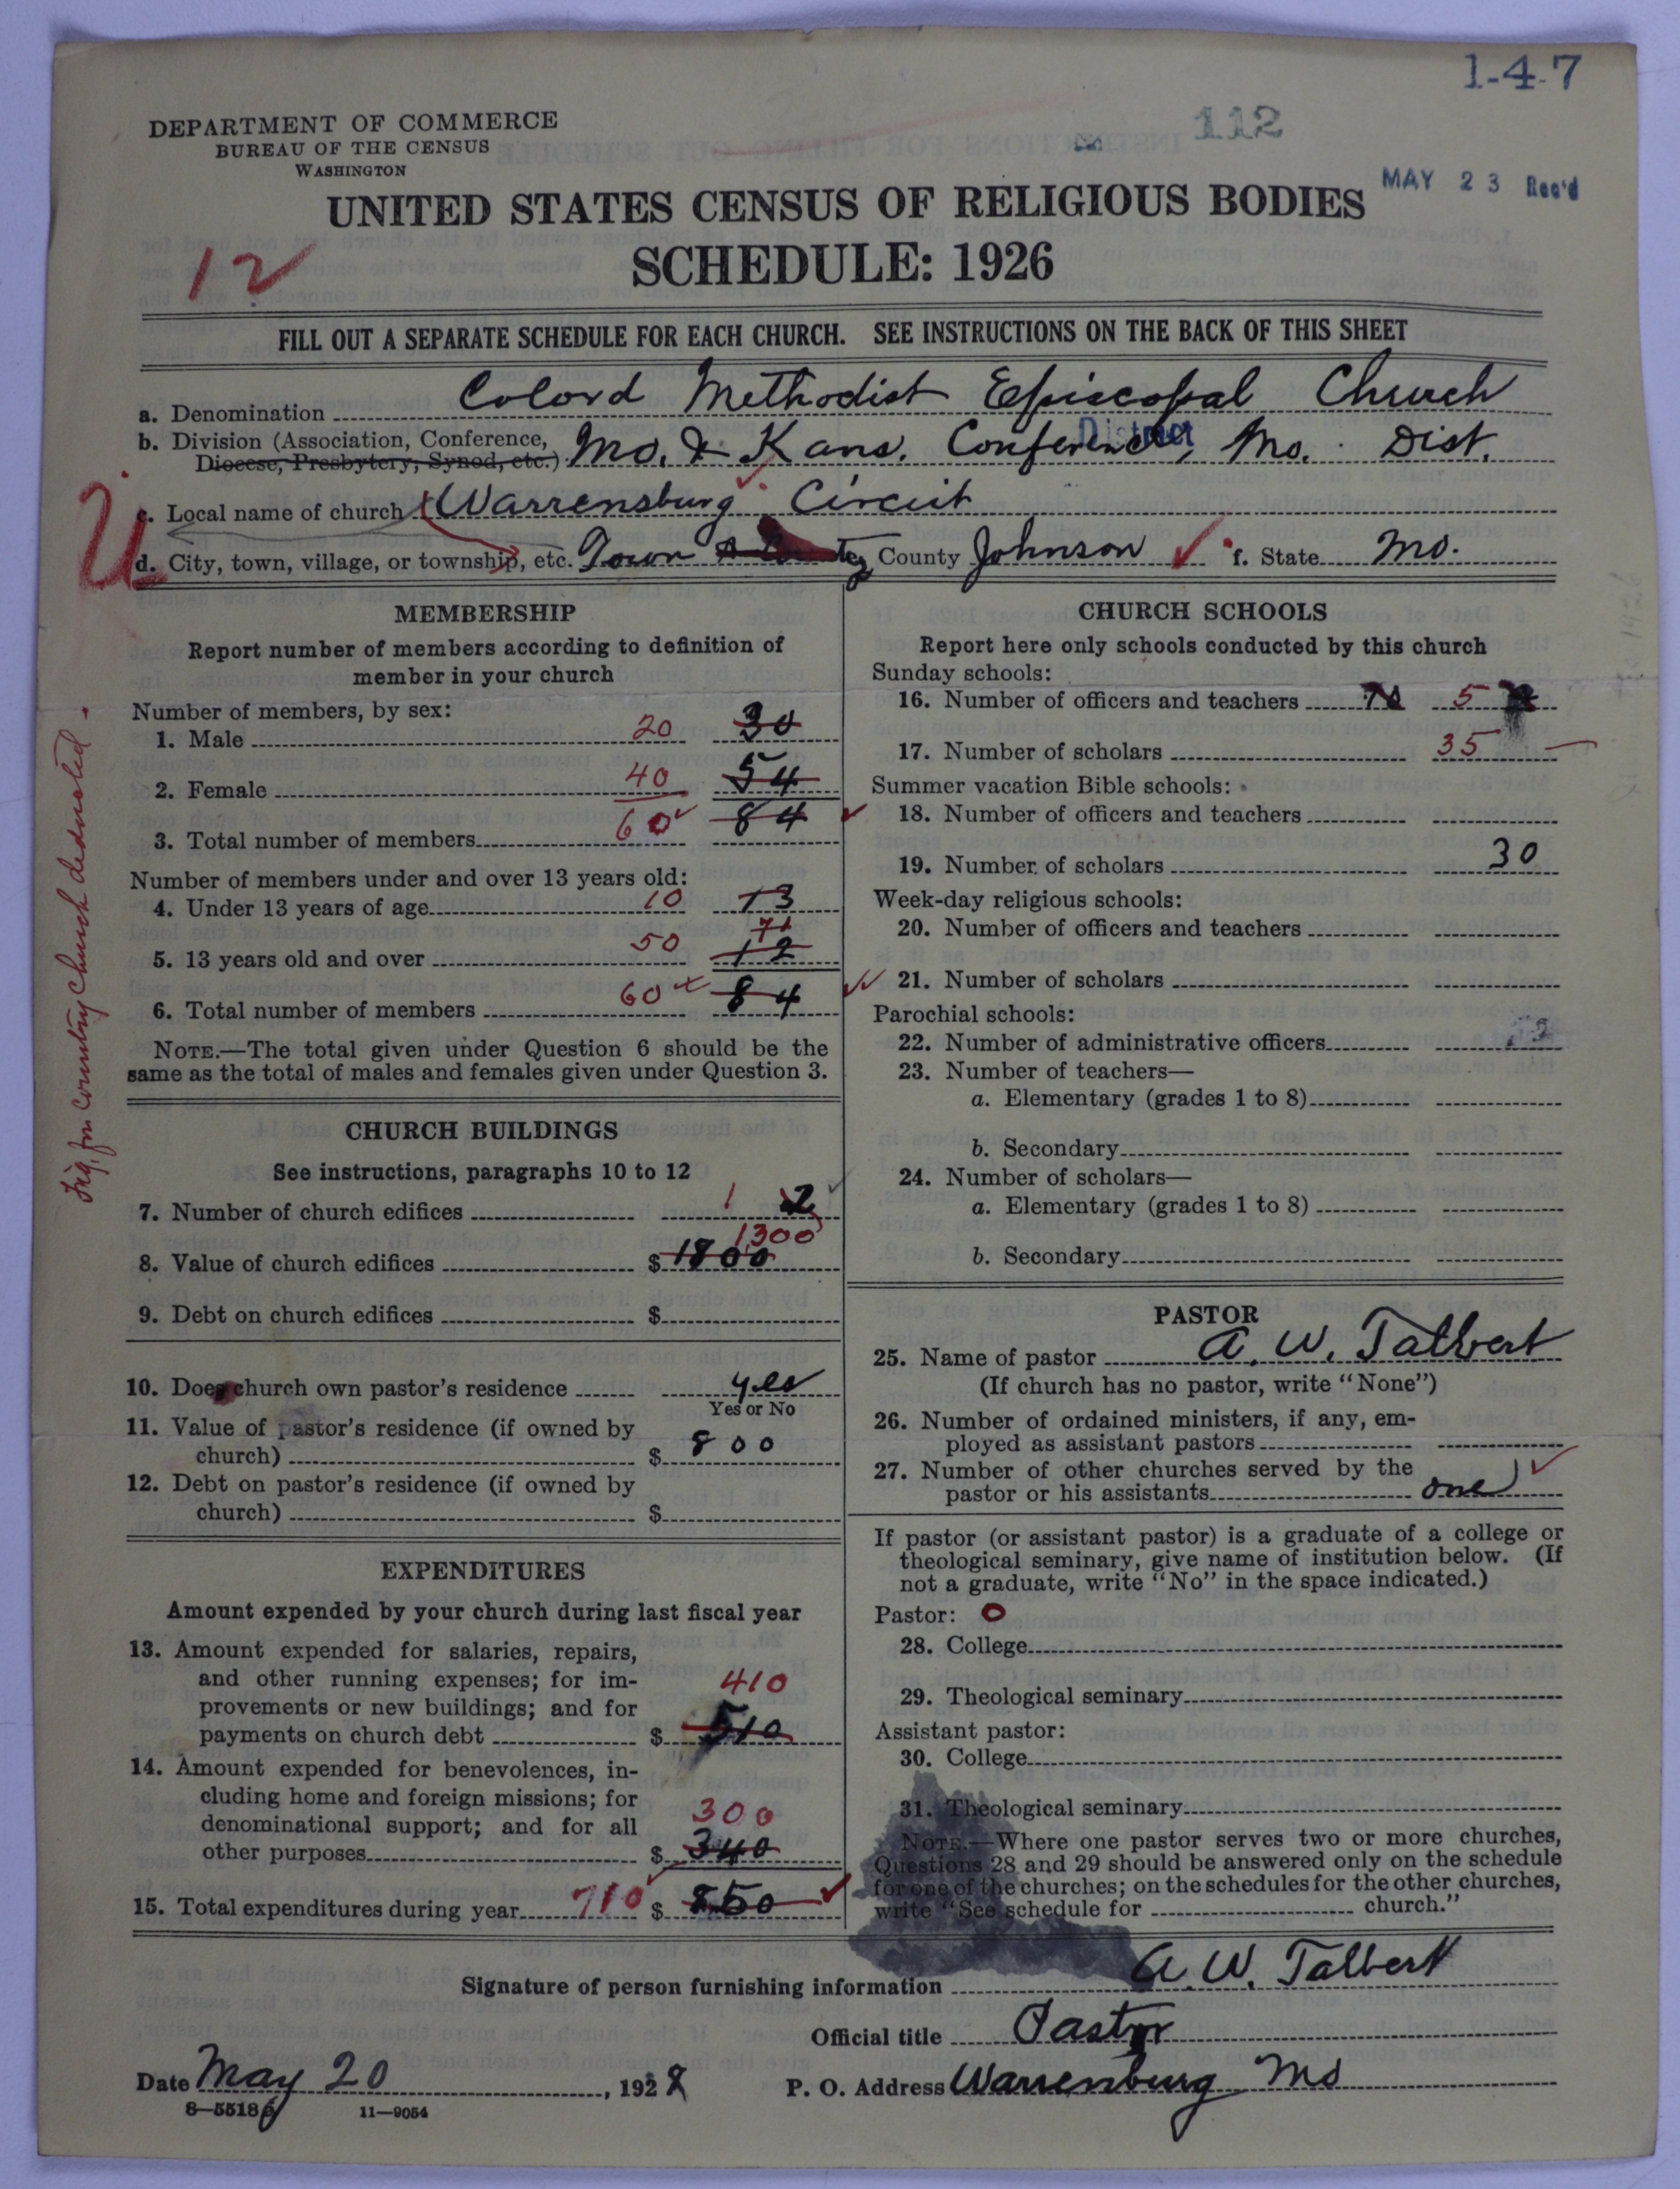 1-4-7
DEPARTMENT OF COMMERCE
BUREAU OF THE CENSUS
WASHINGTON
112
MAY 23 Rec'd
UNITED STATES CENSUS OF RELIGIOUS BODIES
SCHEDULE: 1926
12
FILL OUT A SEPARATE SCHEDULE FOR EACH CHURCH. SEE INSTRUCTIONS ON THE BACK OF THIS SHEET
a. Denomination Colord Methodist Episcopal Church
b. Division (Association, Conference, Diocese, Presbytery, Synod, etc.) Mo. & Kans. Conference, Mo. Dist.
District
c. Local name of church Warrensburg Circuit
d. City, town, village, or township, etc. Town County Johnson f. State Mo.
U
MEMBERSHIP
Report number of members according to definition of
member in your church
Number of members, by sex:
1. Male 20 30
2. Female 40 54
3. Total number of members 60 84
Number of members under and over 13 years old:
4. Under 13 years of age 10 13
71
5. 13 years old and over 50 12
6. Total number of members 60 84
NOTE.—The total given under Question 6 should be the
same as the total of males and females given under Question 3.
Fig. for country church deducted.
CHURCH BUILDINGS
See instructions, paragraphs 10 to 12
7. Number of church edifices 1 2
1300
8. Value of church edifices $ 1800
9. Debt on church edifices $
10. Does church own pastor's residence yes
Yes or No
11. Value of pastor's residence (if owned by
church) $ 800
12. Debt on pastor's residence (if owned by
church) $
EXPENDITURES
Amount expended by your church during last fiscal year
13. Amount expended for salaries, repairs,
and other running expenses; for im-
provements or new buildings; and for 410
payments on church debt $ 510
14. Amount expended for benevolences, in-
cluding home and foreign missions; for
denominational support; and for all 300
other purposes $ 340
15. Total expenditures during year 710 $ 850
CHURCH SCHOOLS
Report here only schools conducted by this church
Sunday schools:
16. Number of officers and teachers 5
17. Number of scholars 35
Summer vacation Bible schools:
18. Number of officers and teachers
19. Number of scholars 30
Week-day religious schools:
20. Number of officers and teachers
21. Number of scholars
Parochial schools:
22. Number of administrative officers
23. Number of teachers—
a. Elementary (grades 1 to 8)
b. Secondary
24. Number of scholars—
a. Elementary (grades 1 to 8)
b. Secondary
PASTOR
25. Name of pastor A. W. Talbert
(If church has no pastor, write "None")
26. Number of ordained ministers, if any, em-
ployed as assistant pastors
27. Number of other churches served by the
pastor or his assistants one
If pastor (or assistant pastor) is a graduate of a college or
theological seminary, give name of institution below. (If
not a graduate, write "No" in the space indicated.)
Pastor: O
28. College
29. Theological seminary
Assistant pastor:
30. College
31. Theological seminary
NOTE.—Where one pastor serves two or more churches,
Questions 28 and 29 should be answered only on the schedule
for one of the churches; on the schedules for the other churches,
write "See schedule for church."
Signature of person furnishing information A. W. Talbert
Official title Pastor
Date May 20, 1928 P. O. Address Warrenburg Mo
8—5518 11—9054